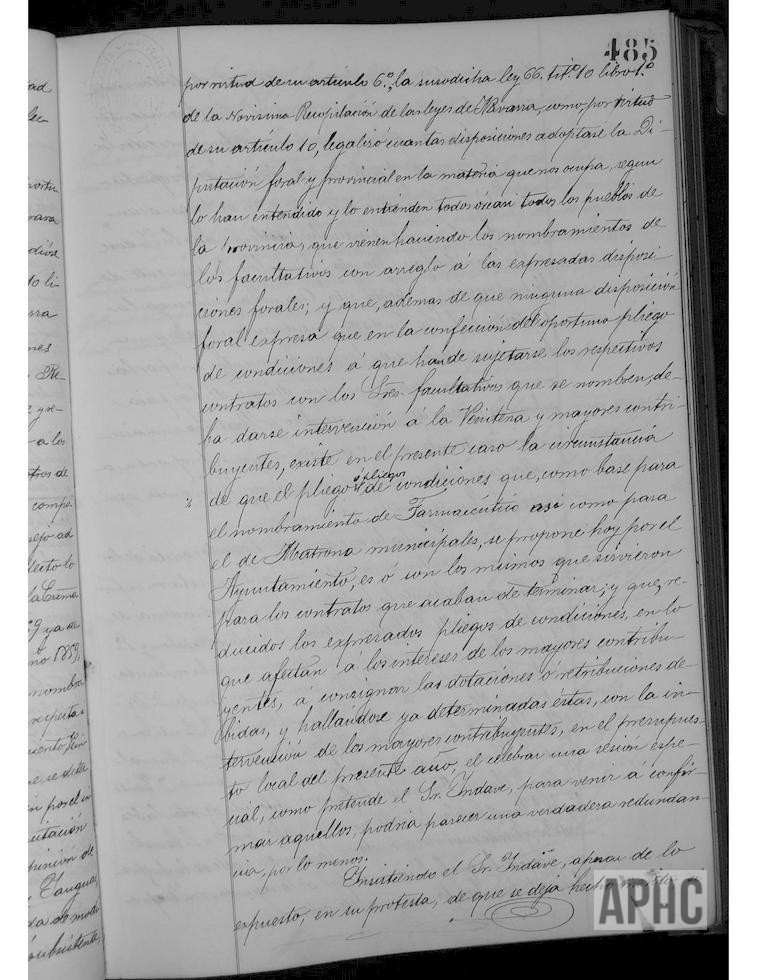 485
por virtud de su artículo 6.º, la susodicha ley 66. tít.º 10 libro 1.º
de la Novisima Recopilación de las leyes de Navarra, como por virtud
de su artículo 10, legalisó cuantas disposiciones adoptase la Di-
putación foral y provincial en la materia que nos ocupa, segun
lo han entendido y lo entienden todos ó casi todos los pueblos de
la Provincia, que vienen haciendo los nombramientos de
los facultativos con arreglo á las expresadas disposi-
ciones forales; y que, además de que ninguna disposición
foral expresa que en la confección del oportuno pliego
de condiciones á que han de sujetarse los respectivos
contratos con los Sres. facultativos que se nombren, de-
ba darse intervención á la Veintena y mayores contri-
buyentes, existe en el presente caso la circunstancia
de que el pliego ó pliegos de condiciones que, como base para
el nombramiento de Farmacéutico así como para
el de Matrona municipales, se propone hoy por el
Ayuntamiento, es ó son los mismos que sirvieron
para los contratos que acaban de terminar; y que, re-
ducidos los expresados pliegos de condiciones, en lo
que afectan á los intereses de los mayores contribu-
yentes, á consignar las dotaciones ó retribuciones de-
bidas, y hallandose ya determinadas éstas, con la in-
tervención de los mayores contribuyentes, en el presupues-
to local del presente año, el celebrar una sesión espe-
cial, como pretende el Sr. Indave, para venir á confir-
mar aquellos, podria parecer una verdadera redundan-
cia, por lo menos.
Insistiendo el Sr. Indave, apesar de lo
expuesto, en su protesta, de que se deja hecho
APHC
ortu
nara
to li-
nes
Re-
á los
tros de
compe
nejo ad
nombra
cuesto
por el
Taugua,
da de modi
subsistente